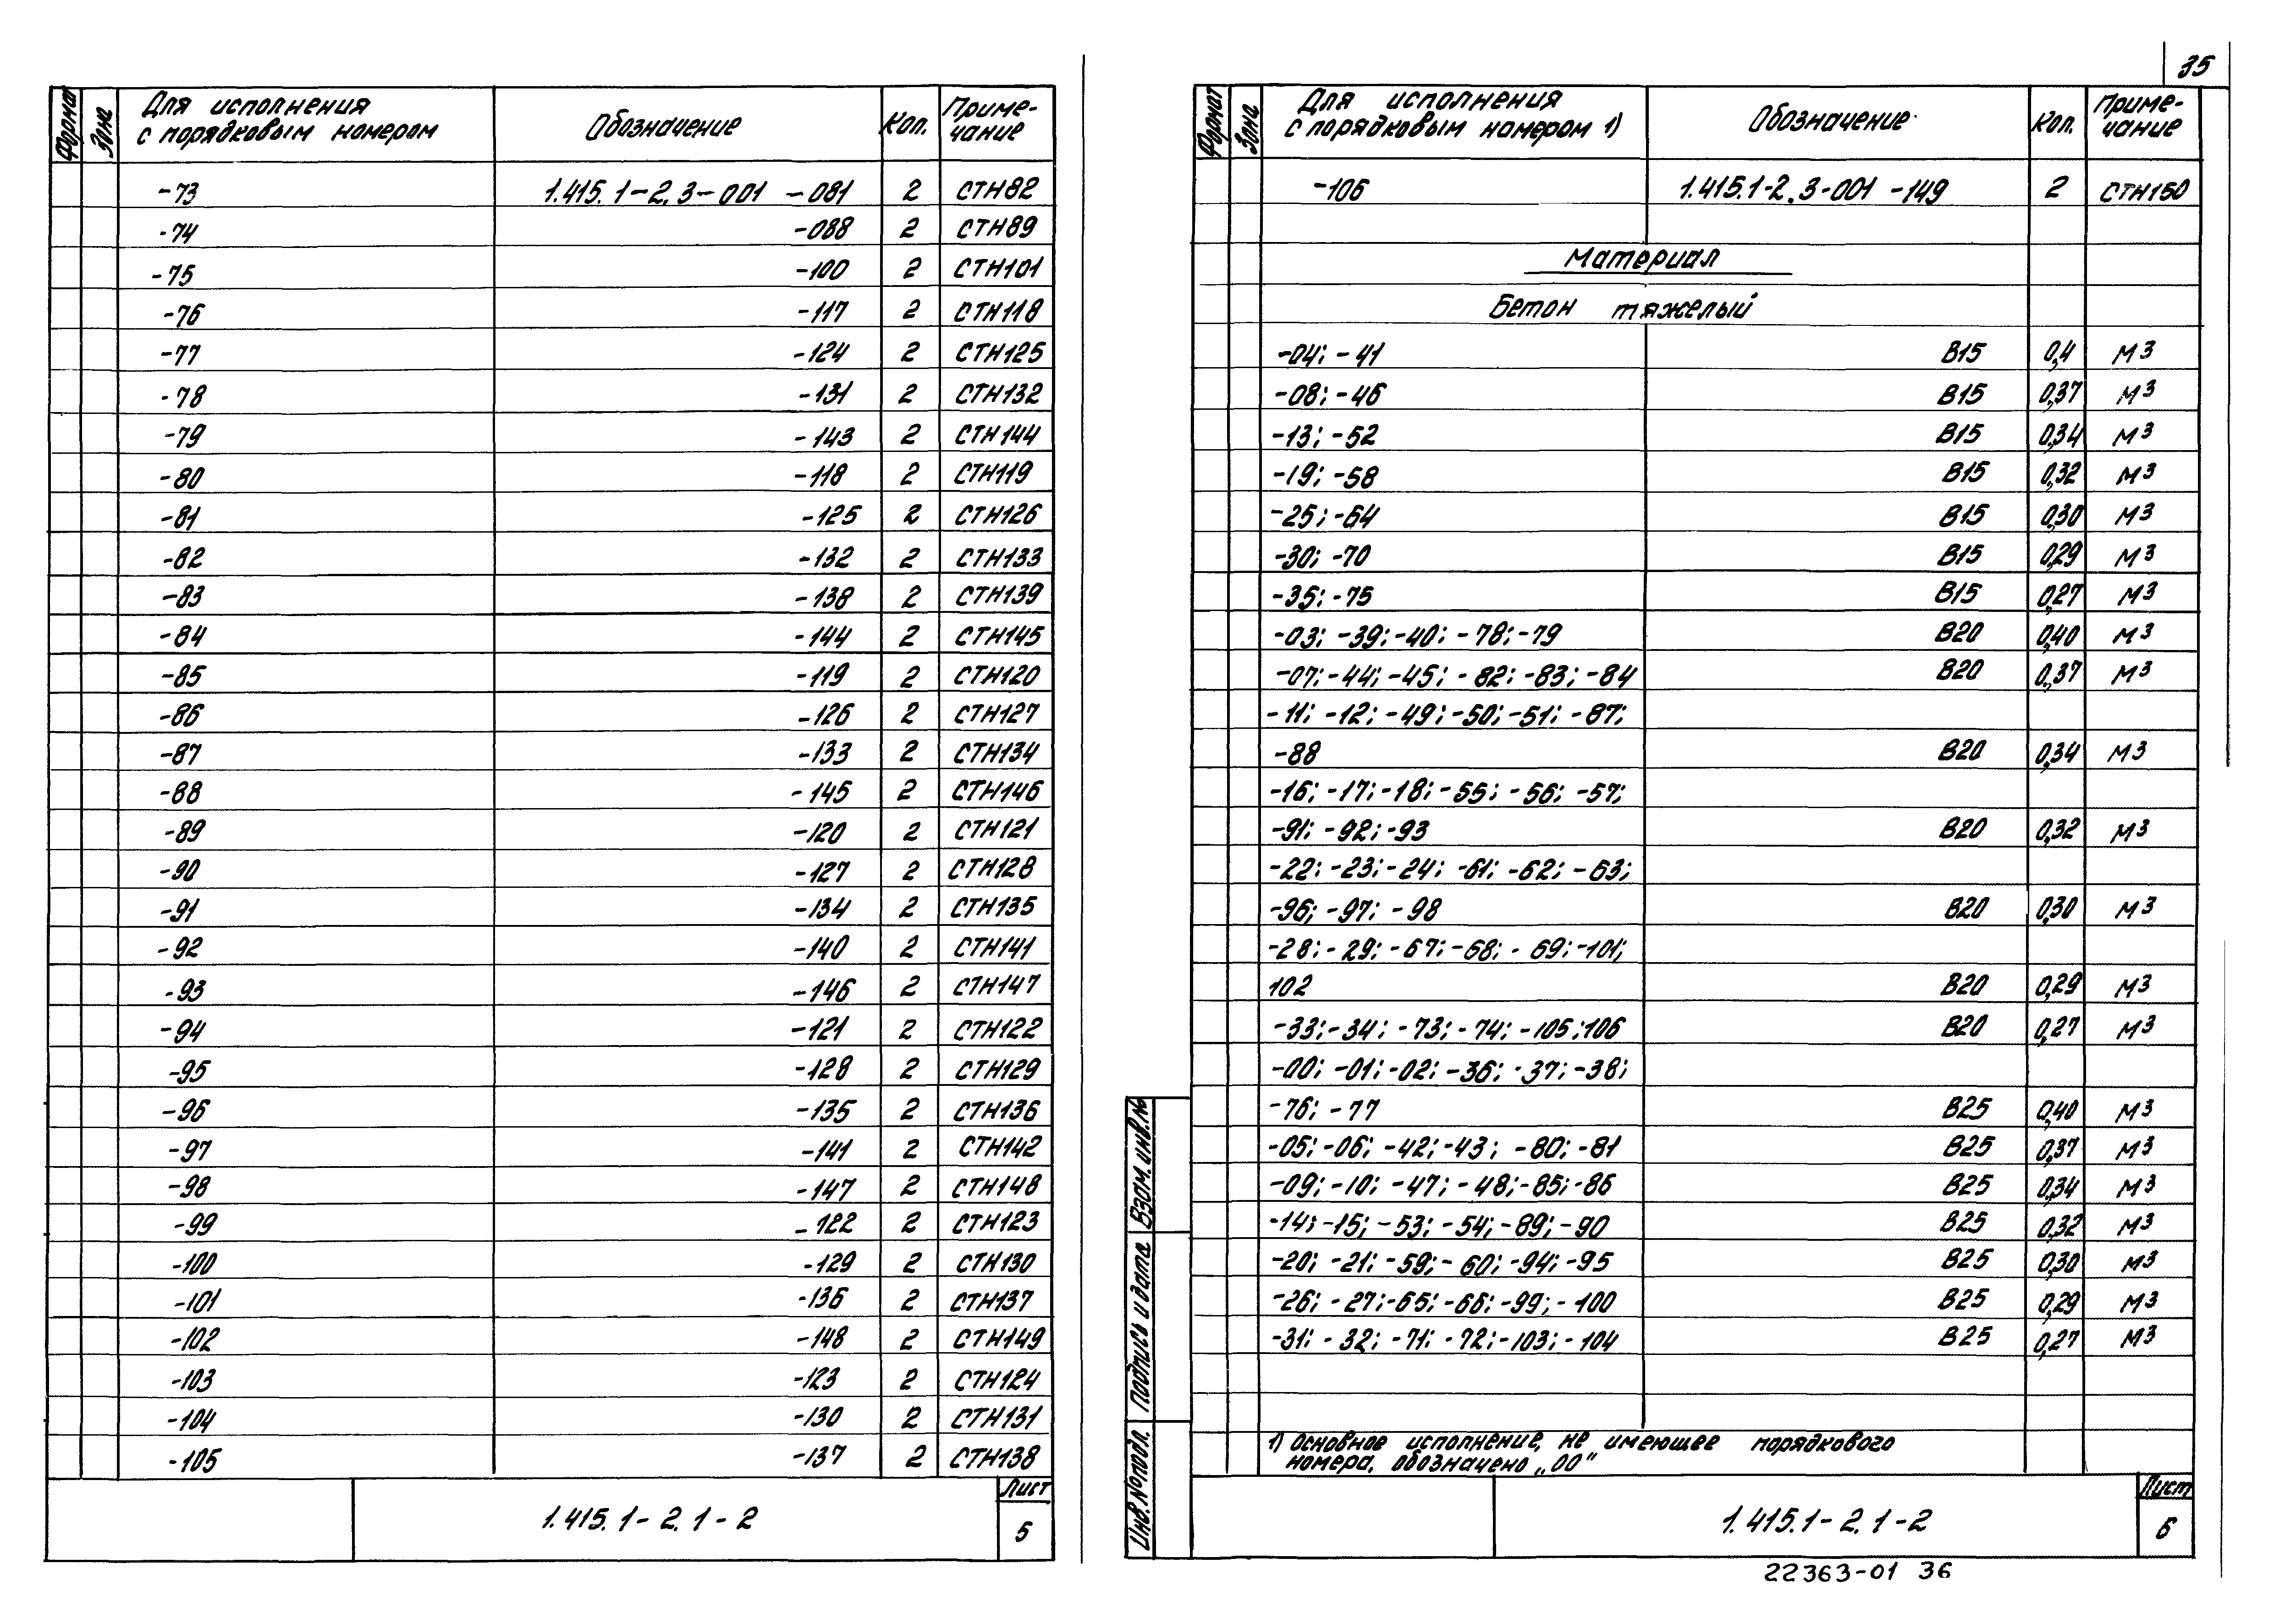 Формат Зона Для исполнения с порядковым номером Обозначение Кол. Приме-чание
-73 1.415.1-2.3-001 -081 2 СТН82
-74 -088 2 СТН89
-75 -100 2 СТН101
-76 -117 2 СТН118
-77 -124 2 СТН125
-78 -131 2 СТН132
-79 -143 2 СТН144
-80 -118 2 СТН119
-81 -125 2 СТН126
-82 -132 2 СТН133
-83 -138 2 СТН139
-84 -144 2 СТН145
-85 -119 2 СТН120
-86 -126 2 СТН127
-87 -133 2 СТН134
-88 -145 2 СТН146
-89 -120 2 СТН121
-90 -127 2 СТН128
-91 -134 2 СТН135
-92 -140 2 СТН141
-93 -146 2 СТН147
-94 -121 2 СТН122
-95 -128 2 СТН129
-96 -135 2 СТН136
-97 -141 2 СТН142
-98 -147 2 СТН148
-99 -122 2 СТН123
-100 -129 2 СТН130
-101 -136 2 СТН137
-102 -148 2 СТН149
-103 -123 2 СТН124
-104 -130 2 СТН131
-105 -137 2 СТН138
1.415.1-2.1-2
Лист
5
35
Формат Зона Для исполнения с порядковым номером 1) Обозначение Кол. Приме-чание
-106 1.415.1-2.3-001 -149 2 СТН150
Материал
Бетон тяжелый
-04; -41 В15 0,4 м3
-08; -46 В15 0,37 м3
-13; -52 В15 0,34 м3
-19; -58 В15 0,32 м3
-25; -64 В15 0,30 м3
-30; -70 В15 0,29 м3
-35; -75 В15 0,27 м3
-03; -39; -40; -78; -79 В20 0,40 м3
-07; -44; -45; -82; -83; -84 В20 0,37 м3
-11; -12; -49; -50; -51; -87;
-88 В20 0,34 м3
-16; -17; -18; -55; -56; -57;
-91; -92; -93 В20 0,32 м3
-22; -23; -24; -61; -62; -63;
-96; -97; -98 В20 0,30 м3
-28; -29; -67; -68; -69; -101;
102 В20 0,29 м3
-33; -34; -73; -74; -105; 106 В20 0,27 м3
-00; -01; -02; -36; -37; -38;
-76; -77 В25 0,40 м3
-05; -06; -42; -43; -80; -81 В25 0,37 м3
-09; -10; -47; -48; -85; -86 В25 0,34 м3
-14; -15; -53; -54; -89; -90 В25 0,32 м3
-20; -21; -59; -60; -94; -95 В25 0,30 м3
-26; -27; -65; -66; -99; -100 В25 0,29 м3
-31; -32; -71; -72; -103; -104 В25 0,27 м3
1) Основное исполнение, не имеющее порядкового
номера, обозначено „00"
Инв.№подл. Подпись и дата Взам.инв.№
1.415.1-2.1-2
Лист
6
22363-01 36